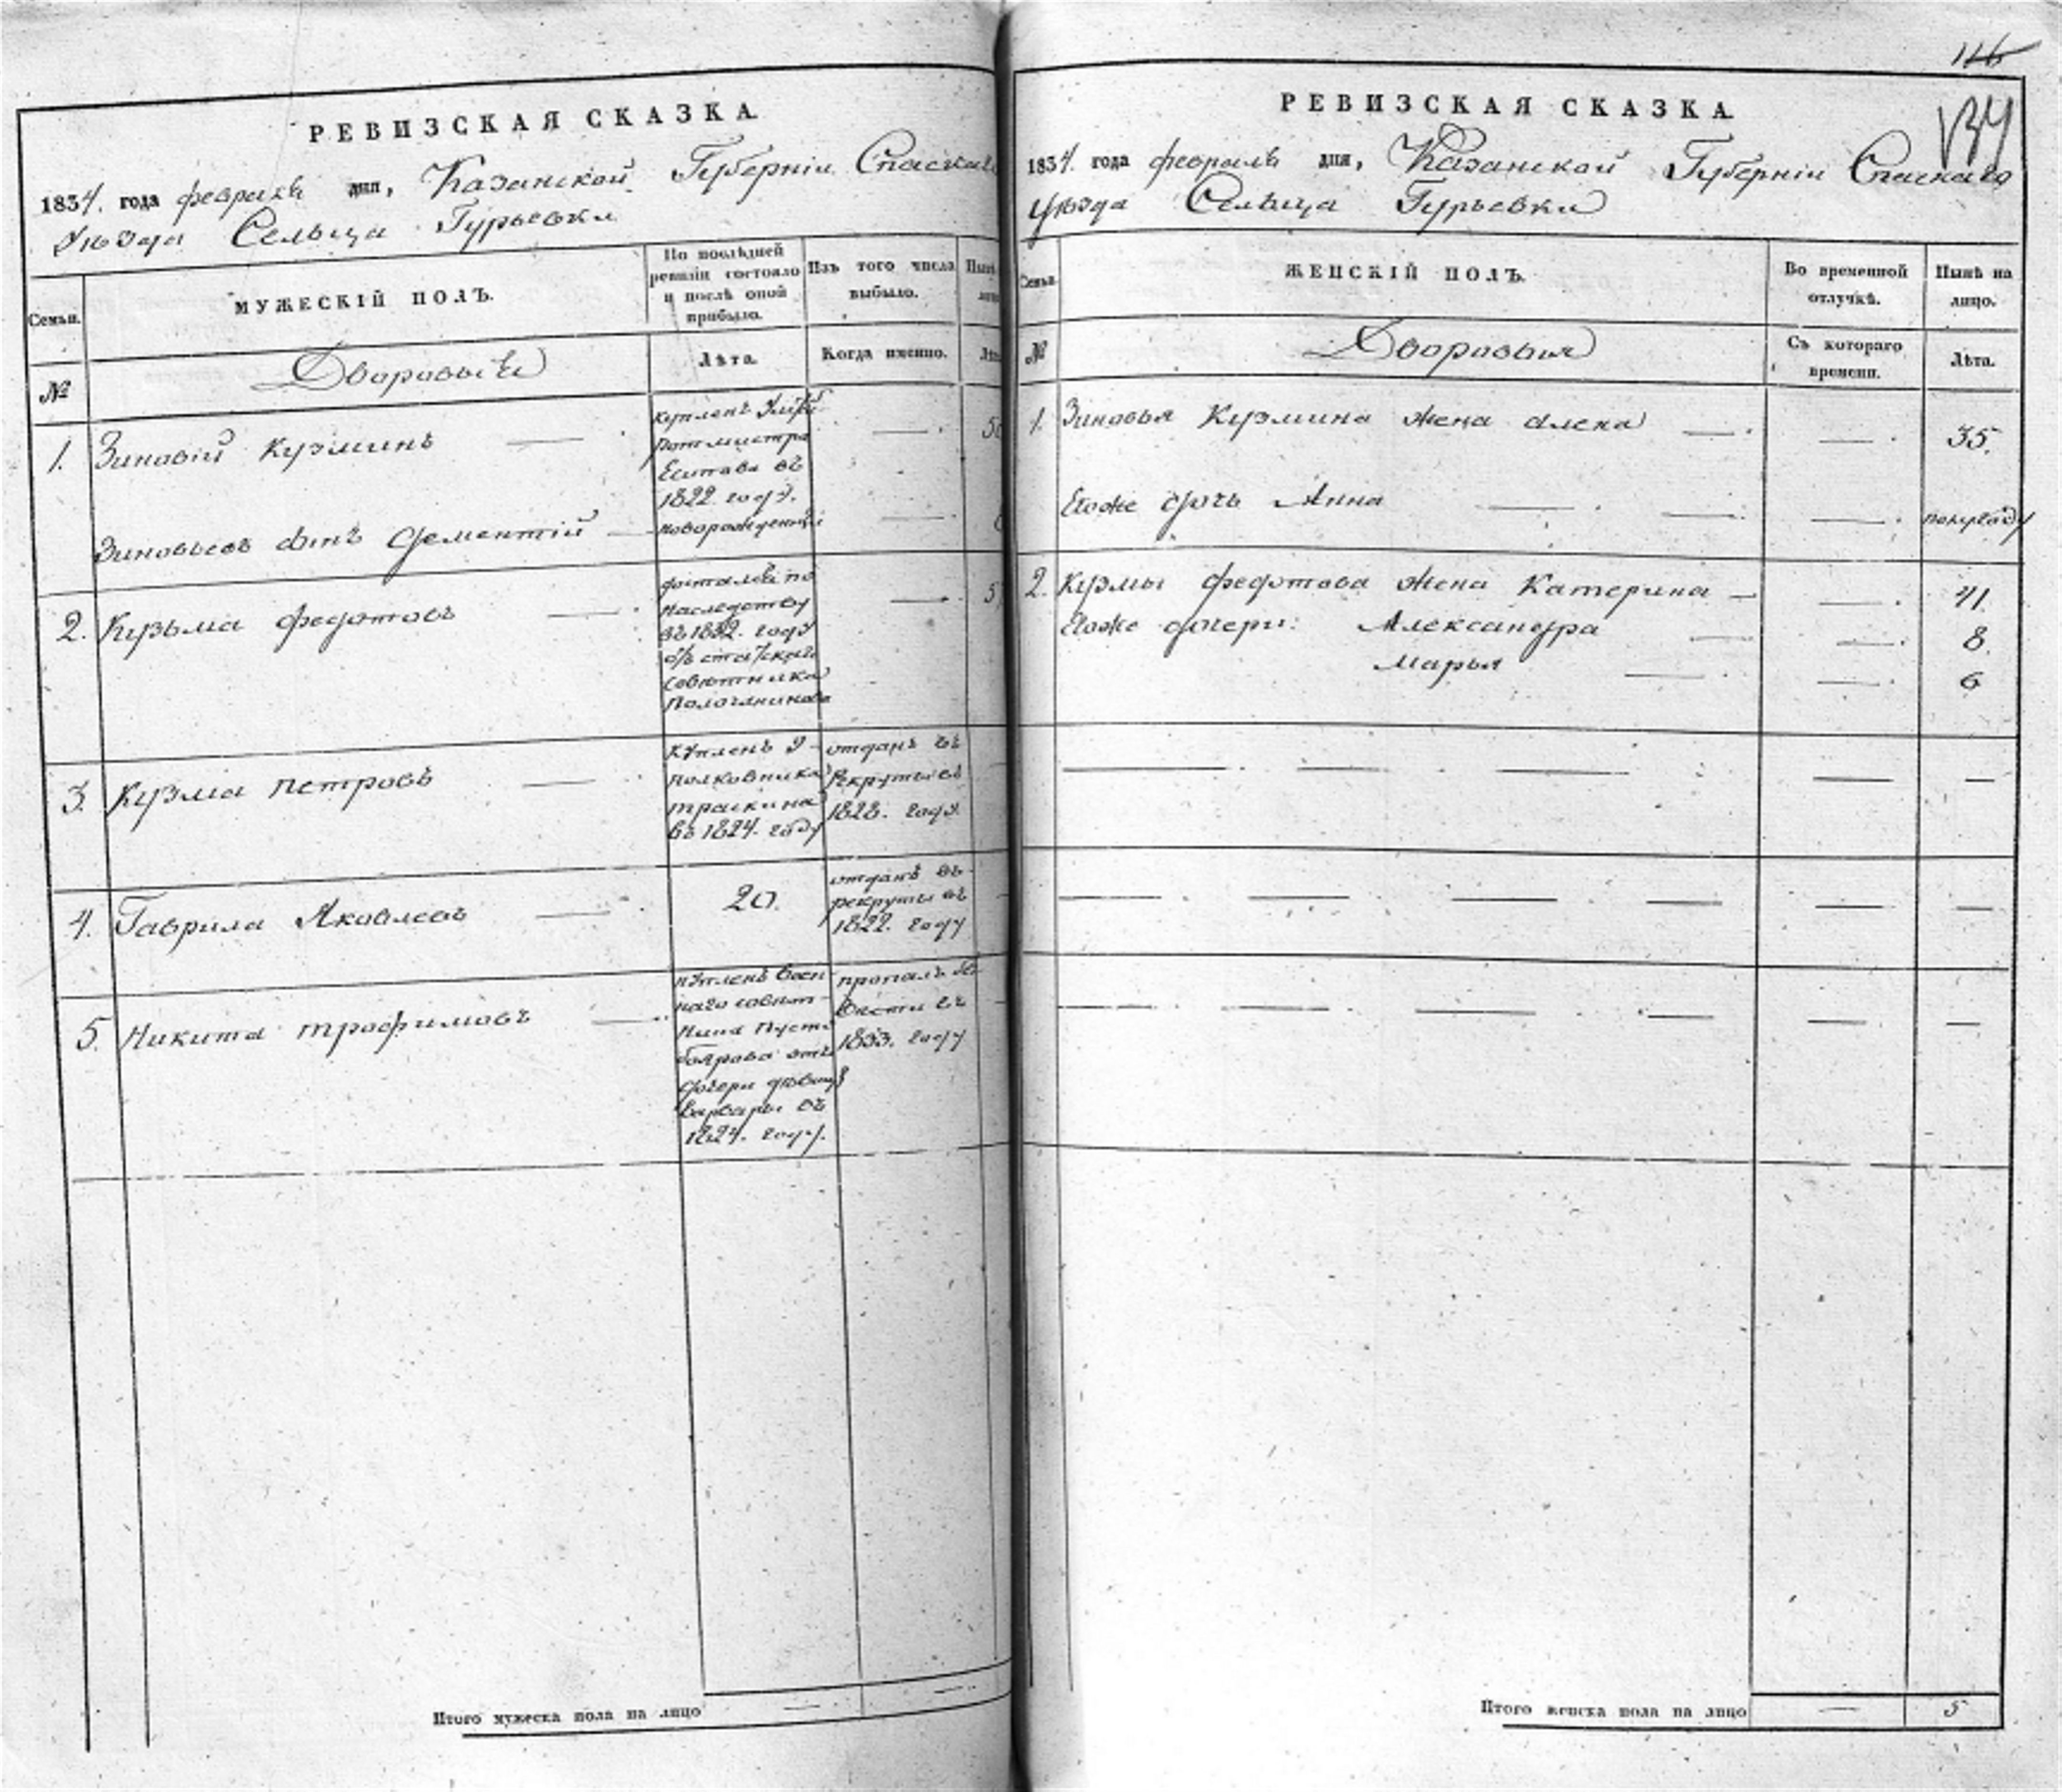 РЕВИЗСКАЯ СКАЗКА
1834. года февраля дня, Казанской Губернiи Спаскаго
Уѣзда Сельца Гурьевки
Семьи.
МУЖЕСКIЙ ПОЛЪ.
По послѣдней ревизiи состояло и послѣ оной прибыло.
Изъ того числа выбыло.
№
Дворовыѣ
Лѣта.
Когда именно.
1. Зиновiй Кузминъ
купленъ
Ротмистра
въ
1822. году.
Зиновьевъ сынъ Дементiй
новорожденный
2. Кузьма Федотовъ
по
наследству
въ 1832. году
статскаго
советника
3. Кузма Петровъ
Купленъ у
полковника
траскина
въ 1824. году
отданъ въ
Рекруты въ
1828. году
4. Гаврила Яковлевъ
20.
отданъ въ
рекруты въ
1822. году
5. Никита трофимовъ
купленъ
наго совѣт-
ника Пусто
боярова отъ
дочери девицы
Варвары въ
1824. году.
пропалъ безъ
вести въ
1833. году
Итого мужеска пола на лицо
116
134
РЕВИЗСКАЯ СКАЗКА
1834. года февраля дня, Казанской Губернiи Спаскаго
Уѣзда Сельца Гурьевки
Семьи.
ЖЕНСКIЙ ПОЛЪ.
Во временной отлучкѣ.
Нынѣ на лицо.
№
Дворовыя
Съ котораго времени.
Лѣта.
1. Зиновья Кузмина жена Алена 35.
Егоже дочь Анна полугоду
2. Кузмы федотова жена Катерина 41.
Егоже дочери: Александра 8.
Марья 6
Итого женска пола на лицо 5